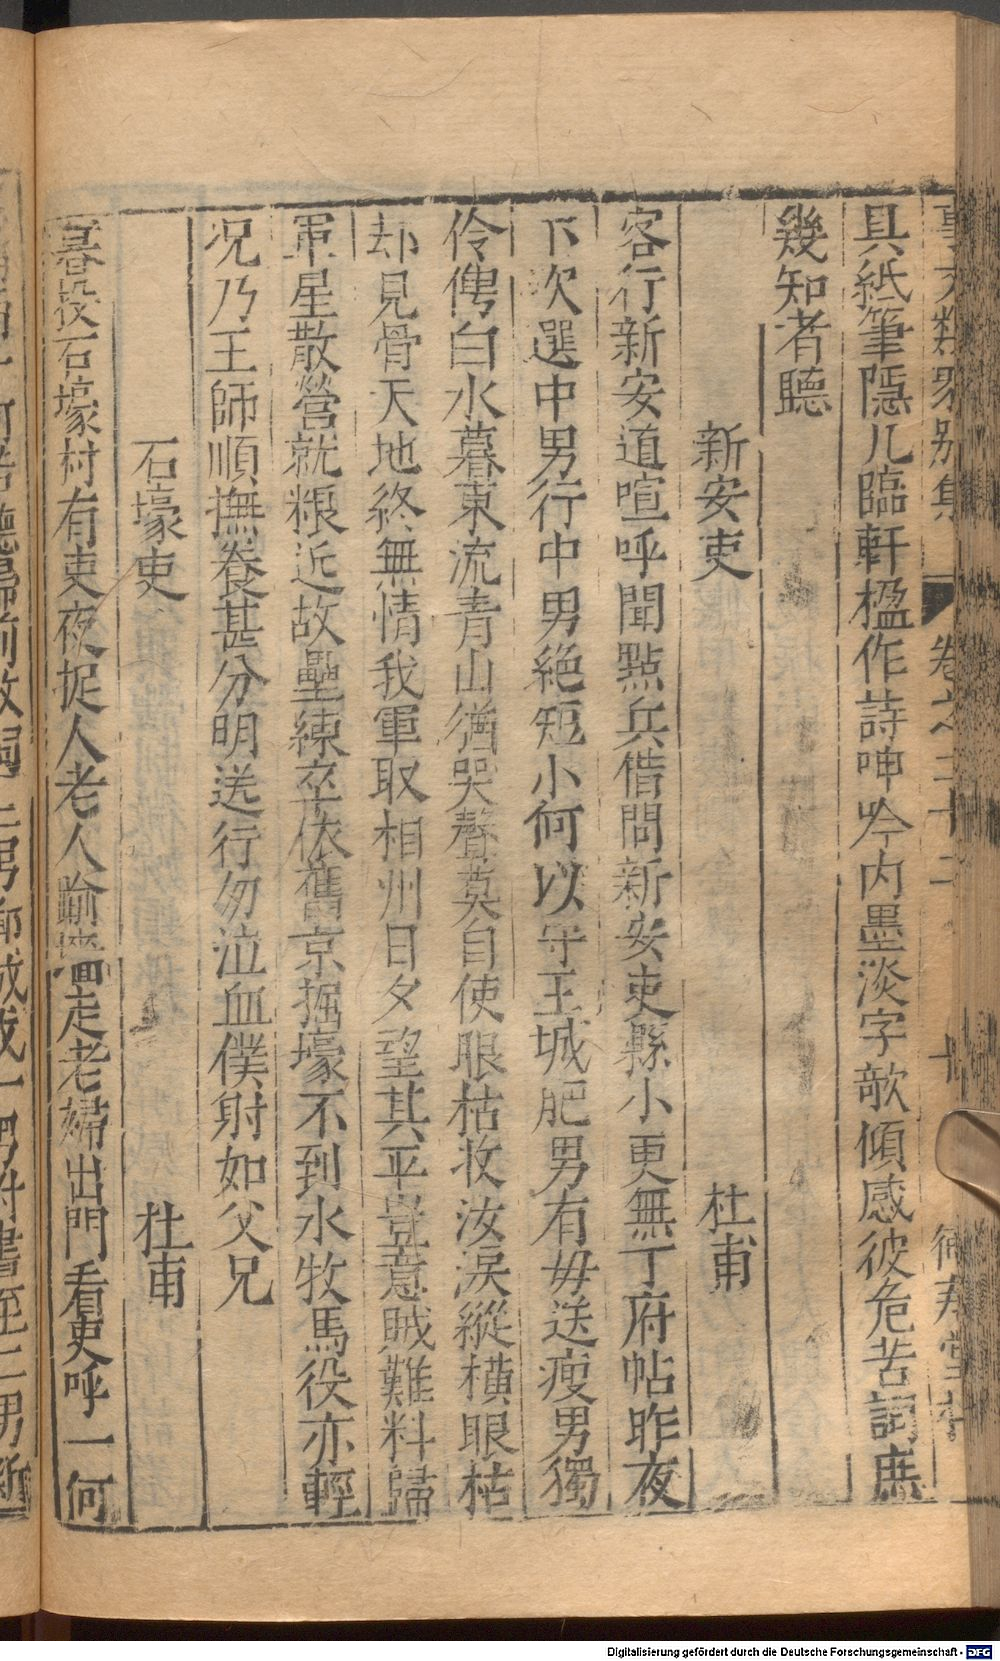 具紙筆隱几臨軒楹作詩呻吟内墨淡字欹傾感彼危苦詞庶
幾知者聽
新安吏 杜甫
客行新安道喧呼聞點兵借問新安吏縣小更無丁府帖昨夜
下次選中男行中男絶短小何以守王城肥男有毋送瘦男獨
伶俜白水暮東流青山猶哭聲莫自使眼枯收汝淚縱橫眼枯
却見骨天地終無情我軍取相州日夕望其平豈意賊難料歸
軍星散營就粮近故壘練卒依舊京掘壕不到水牧馬役亦輕
况乃王師順撫養甚分明送行勿泣血僕射如父兄
石壕吏 杜甫
暮投石壕村有吏夜捉人老人踰墻走老婦出門看吏呼一何
Digitalisierung gefördert durch die Deutsche Forschungsgemeinschaft - DFG